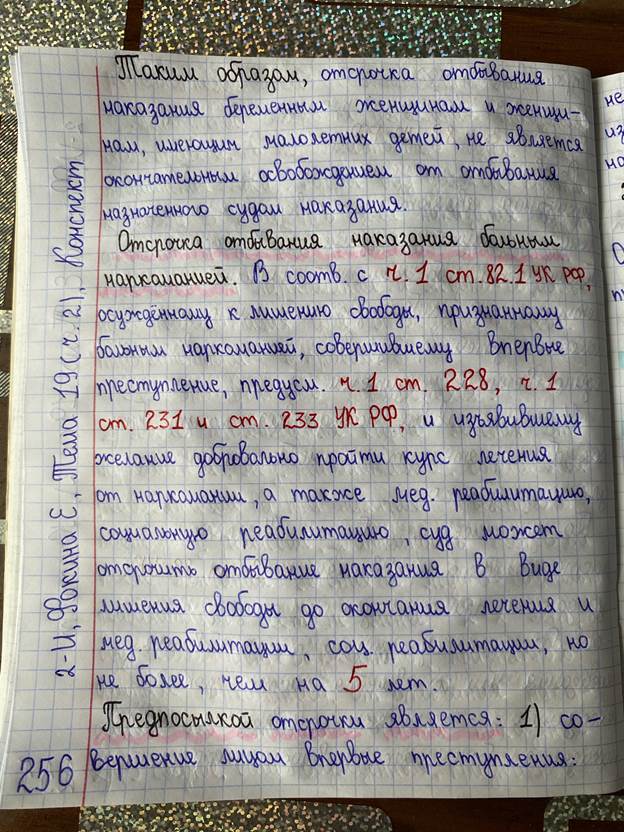 Таким образом, отсрочка отбывания
наказания беременным женщинам и женщи-
нам, имеющим малолетних детей, не является
окончательным освобождением от отбывания
назначенного судом наказания.
Отсрочка отбывания наказания больным
наркоманией. В соотв. с ч. 1 ст. 82.1 УК РФ,
осуждённому к лишению свободы, признанному
больным наркоманией, совершившему впервые
преступление, предусм. ч. 1 ст. 228, ч. 1
ст. 231 и ст. 233 УК РФ, и изъявившему
желание добровольно пройти курс лечения
от наркомании, а также мед. реабилитацию,
социальную реабилитацию, суд может
отсрочить отбывание наказания в виде
лишения свободы до окончания лечения и
мед. реабилитации, соц. реабилитации, но
не более, чем на 5 лет.
Предпосылкой отсрочки является: 1) со-
вершение лицом впервые преступления:
256
2-И, Фокина Е, Тема 19 (ч. 2), Конспект
не
из